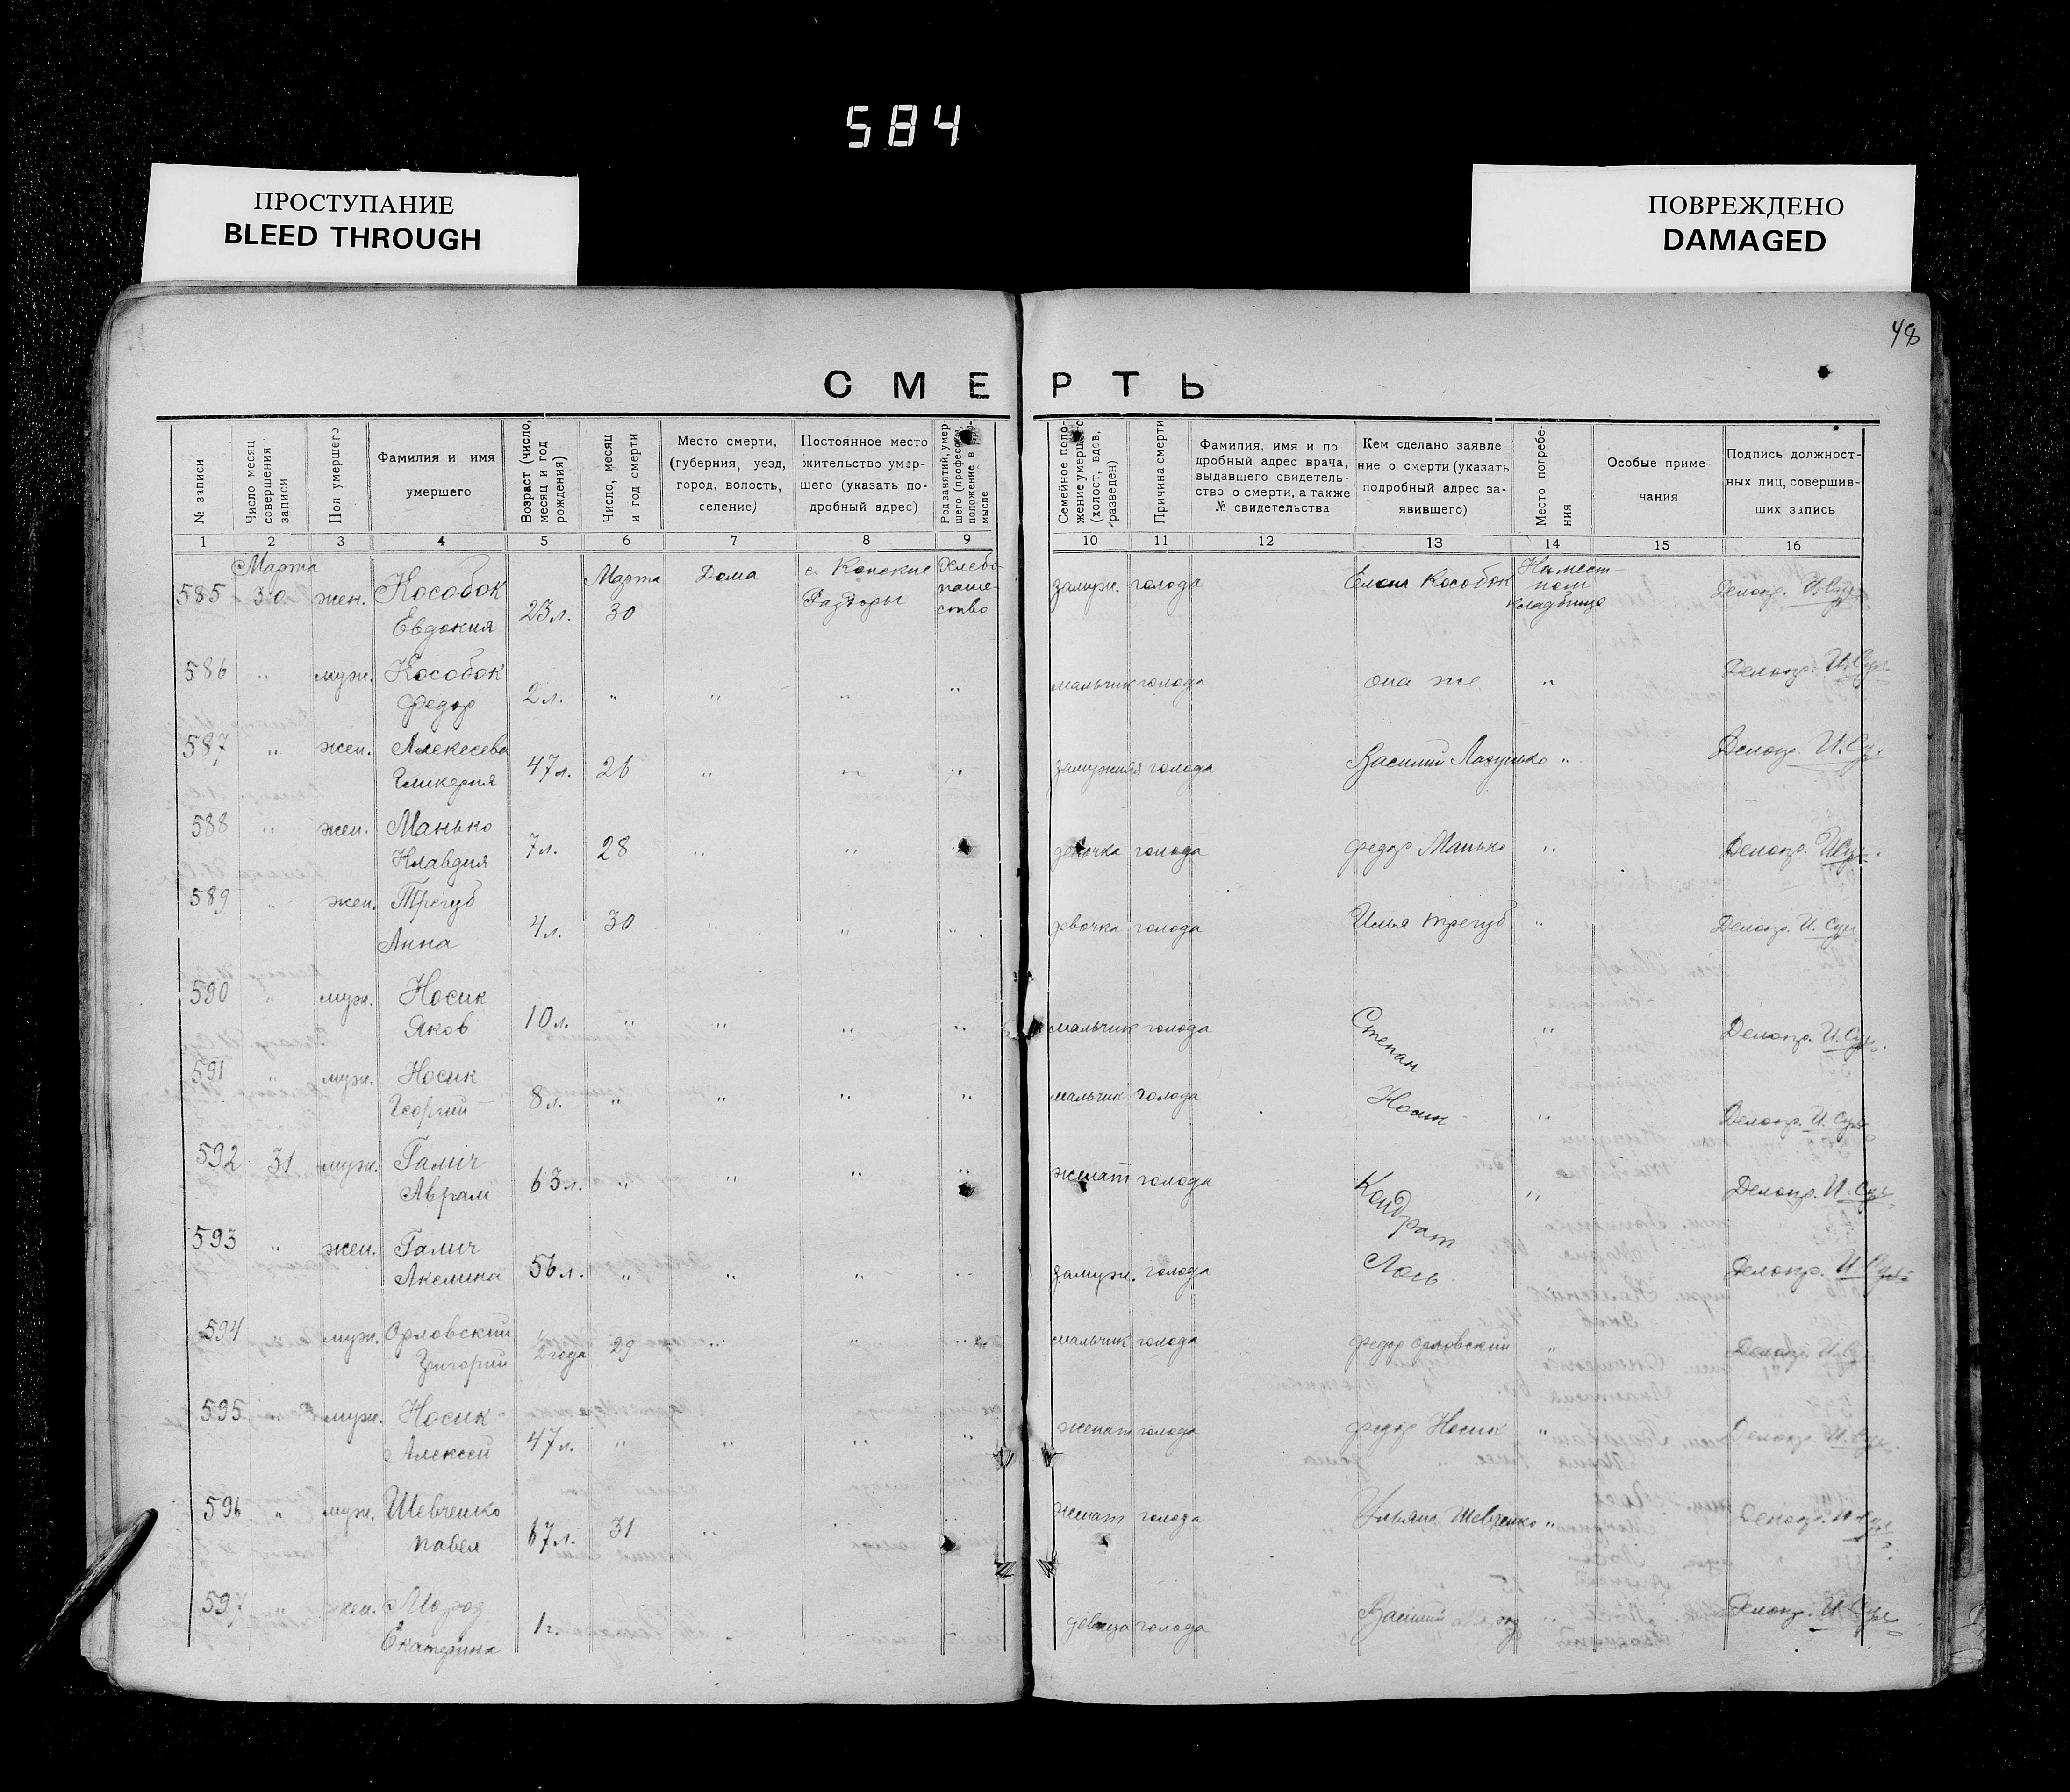 584
ПРОСТУПАНИЕ
BLEED THROUGH
ПОВРЕЖДЕНО
DAMAGED
48
СМЕРТЬ
№ записи
Число месяц совершения записи
Пол умершего
Фамилия и имя умершего
Возраст (число, месяц и год рождения)
Число, месяц и год смерти
Место смерти, (губерния, уезд, город, волость, селение)
Постоянное место жительство умершего (указать подробный адрес)
Род занятий, умершего (професси положение в про- мысле
Семейное положение умершего (холост, вдов, разведен)
Причина смерти
Фамилия, имя и подробный адрес врача, выдавшего свидетельство о смерти, а также № свидетельства
Кем сделано заявление о смерти (указать подробный адрес заявившего)
Место погребения
Особые примечания
Подпись должностных лиц, совершивших запись
1 2 3 4 5 6 7 8 9 10 11 12 13 14 15 16
585 Марта 30 жен. Кособок Евдокия 23 л. Марта 30 Дома с. Конские Раздоры Хлебопашество замуж. голода Елена Кособок На местном кладбище Делопр.
586 " муж. Кособок Федор 2 л. " " " " мальчик голода она же " Делопр.
587 " жен. Алексеева Гликерия 47 л. 26 " " " замужняя голода Василий " Делопр.
588 " жен. Манько Клавдия 7 л. 28 " " девочка голода Федор Манько " Делопр.
589 " жен. Трегуб Анна 4 л. 30 " " " девочка голода Илья Трегуб " Делопр.
590 " муж. Носик Яков 10 л. " " " " мальчик голода Степан " Делопр.
591 " муж. Носик Георгий 8 л. " " " " мальчик голода Носик " Делопр.
592 31 муж. Галич Аврам 63 л. " " " " женат голода Кондрат " Делопр.
593 " жен. Галич Акелина 56 л. " " " " замуж. голода Лось Делопр.
594 " муж. Орловский Григорий 2 года 29 " " " мальчик голода Федор Орловский " Делопр.
595 " муж. Носик Алексей 47 л. " " " " женат голода Федор Носик " Делопр.
596 " муж. Шевченко Павел 67 л. 31 " женат голода Ульяна Шевченко " Делопр.
597 " жен. Мороз Екатерина 1 г. девица голода Василий Мороз " Делопр.